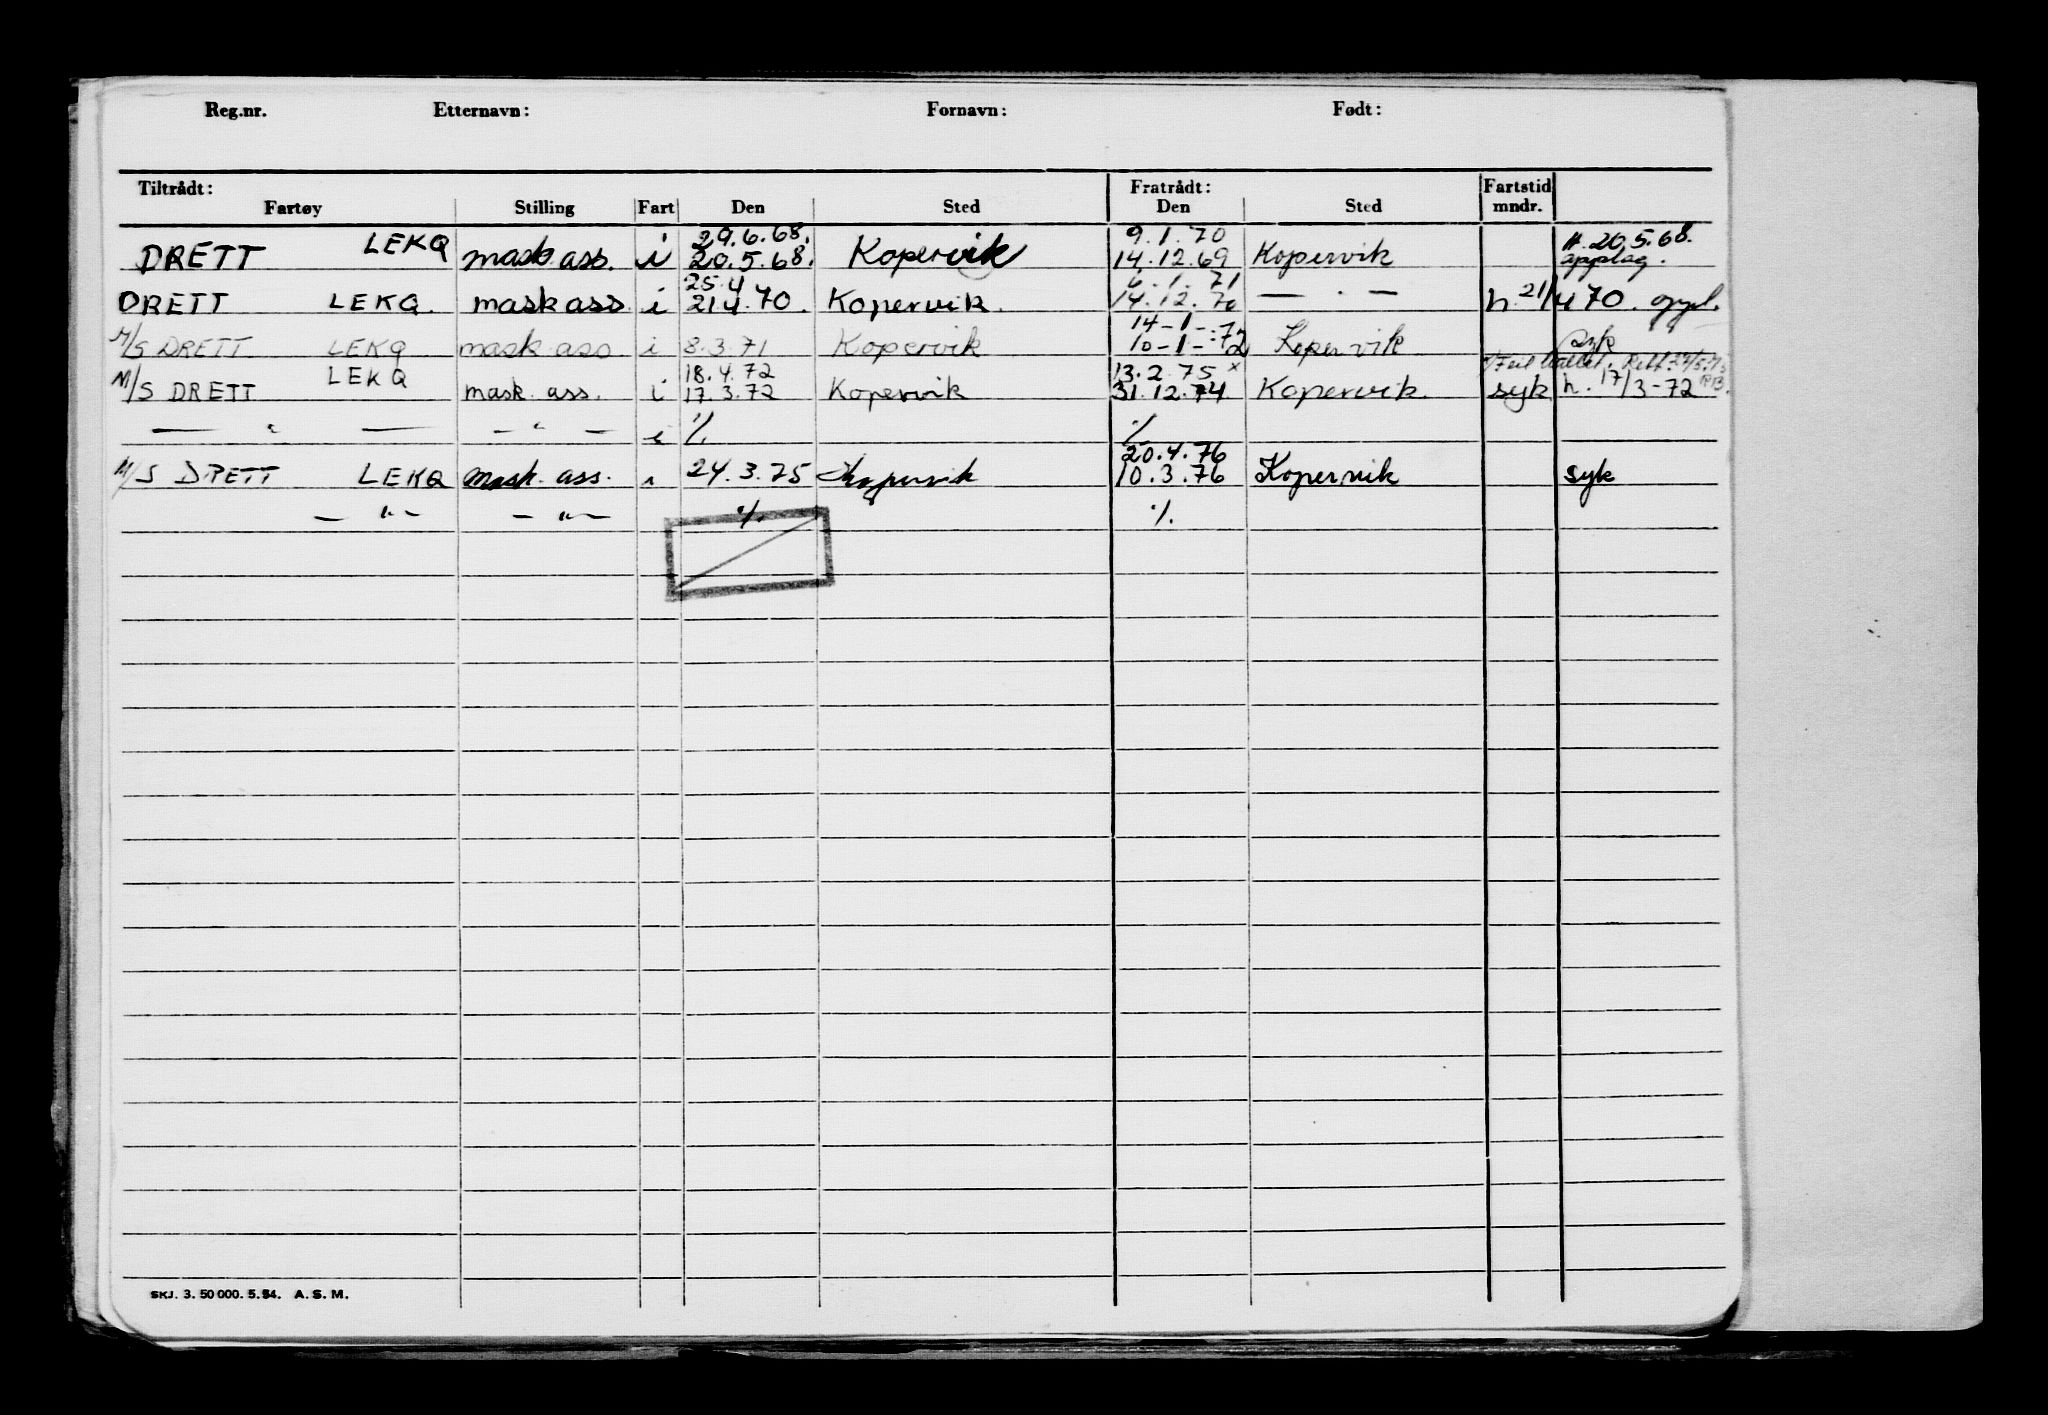 Reg.nr. Etternavn: Fornavn: Født:
Tiltrådt: Fratrådt: Fartstid
Fartøy Stilling Fart Den Sted Den Sted mndr.
29.6.68. 9.1.70 H. 20.5.68.
DRETT LEKQ mask.ass. i 20.5.68. Kopervik 14.12.69 Kopervik opplag.
25.4 6.1.71
DRETT LEKQ. mask ass. i 21.4.70. Kopervik. 14.12.70 — " — h. 21/4 70. oppl.
14-1-72
M/S DRETT LEKQ mask ass i 8.3.71 Kopervik 10-1-72 Kopervik syk
18.4.72 13.2.75 x
M/S DRETT LEKQ mask. ass. i 17.3.72 Kopervik 31.12.74 Kopervik. syk h. 17/3-72
— " — — " — i % %
20.4.76
M/S DRETT LEKQ Mask. ass. i 24.3.75 Kopervik 10.3.76 Kopervik syk
— " — — " — % %
SKJ. 3. 50 000. 5.54. A. S. M.